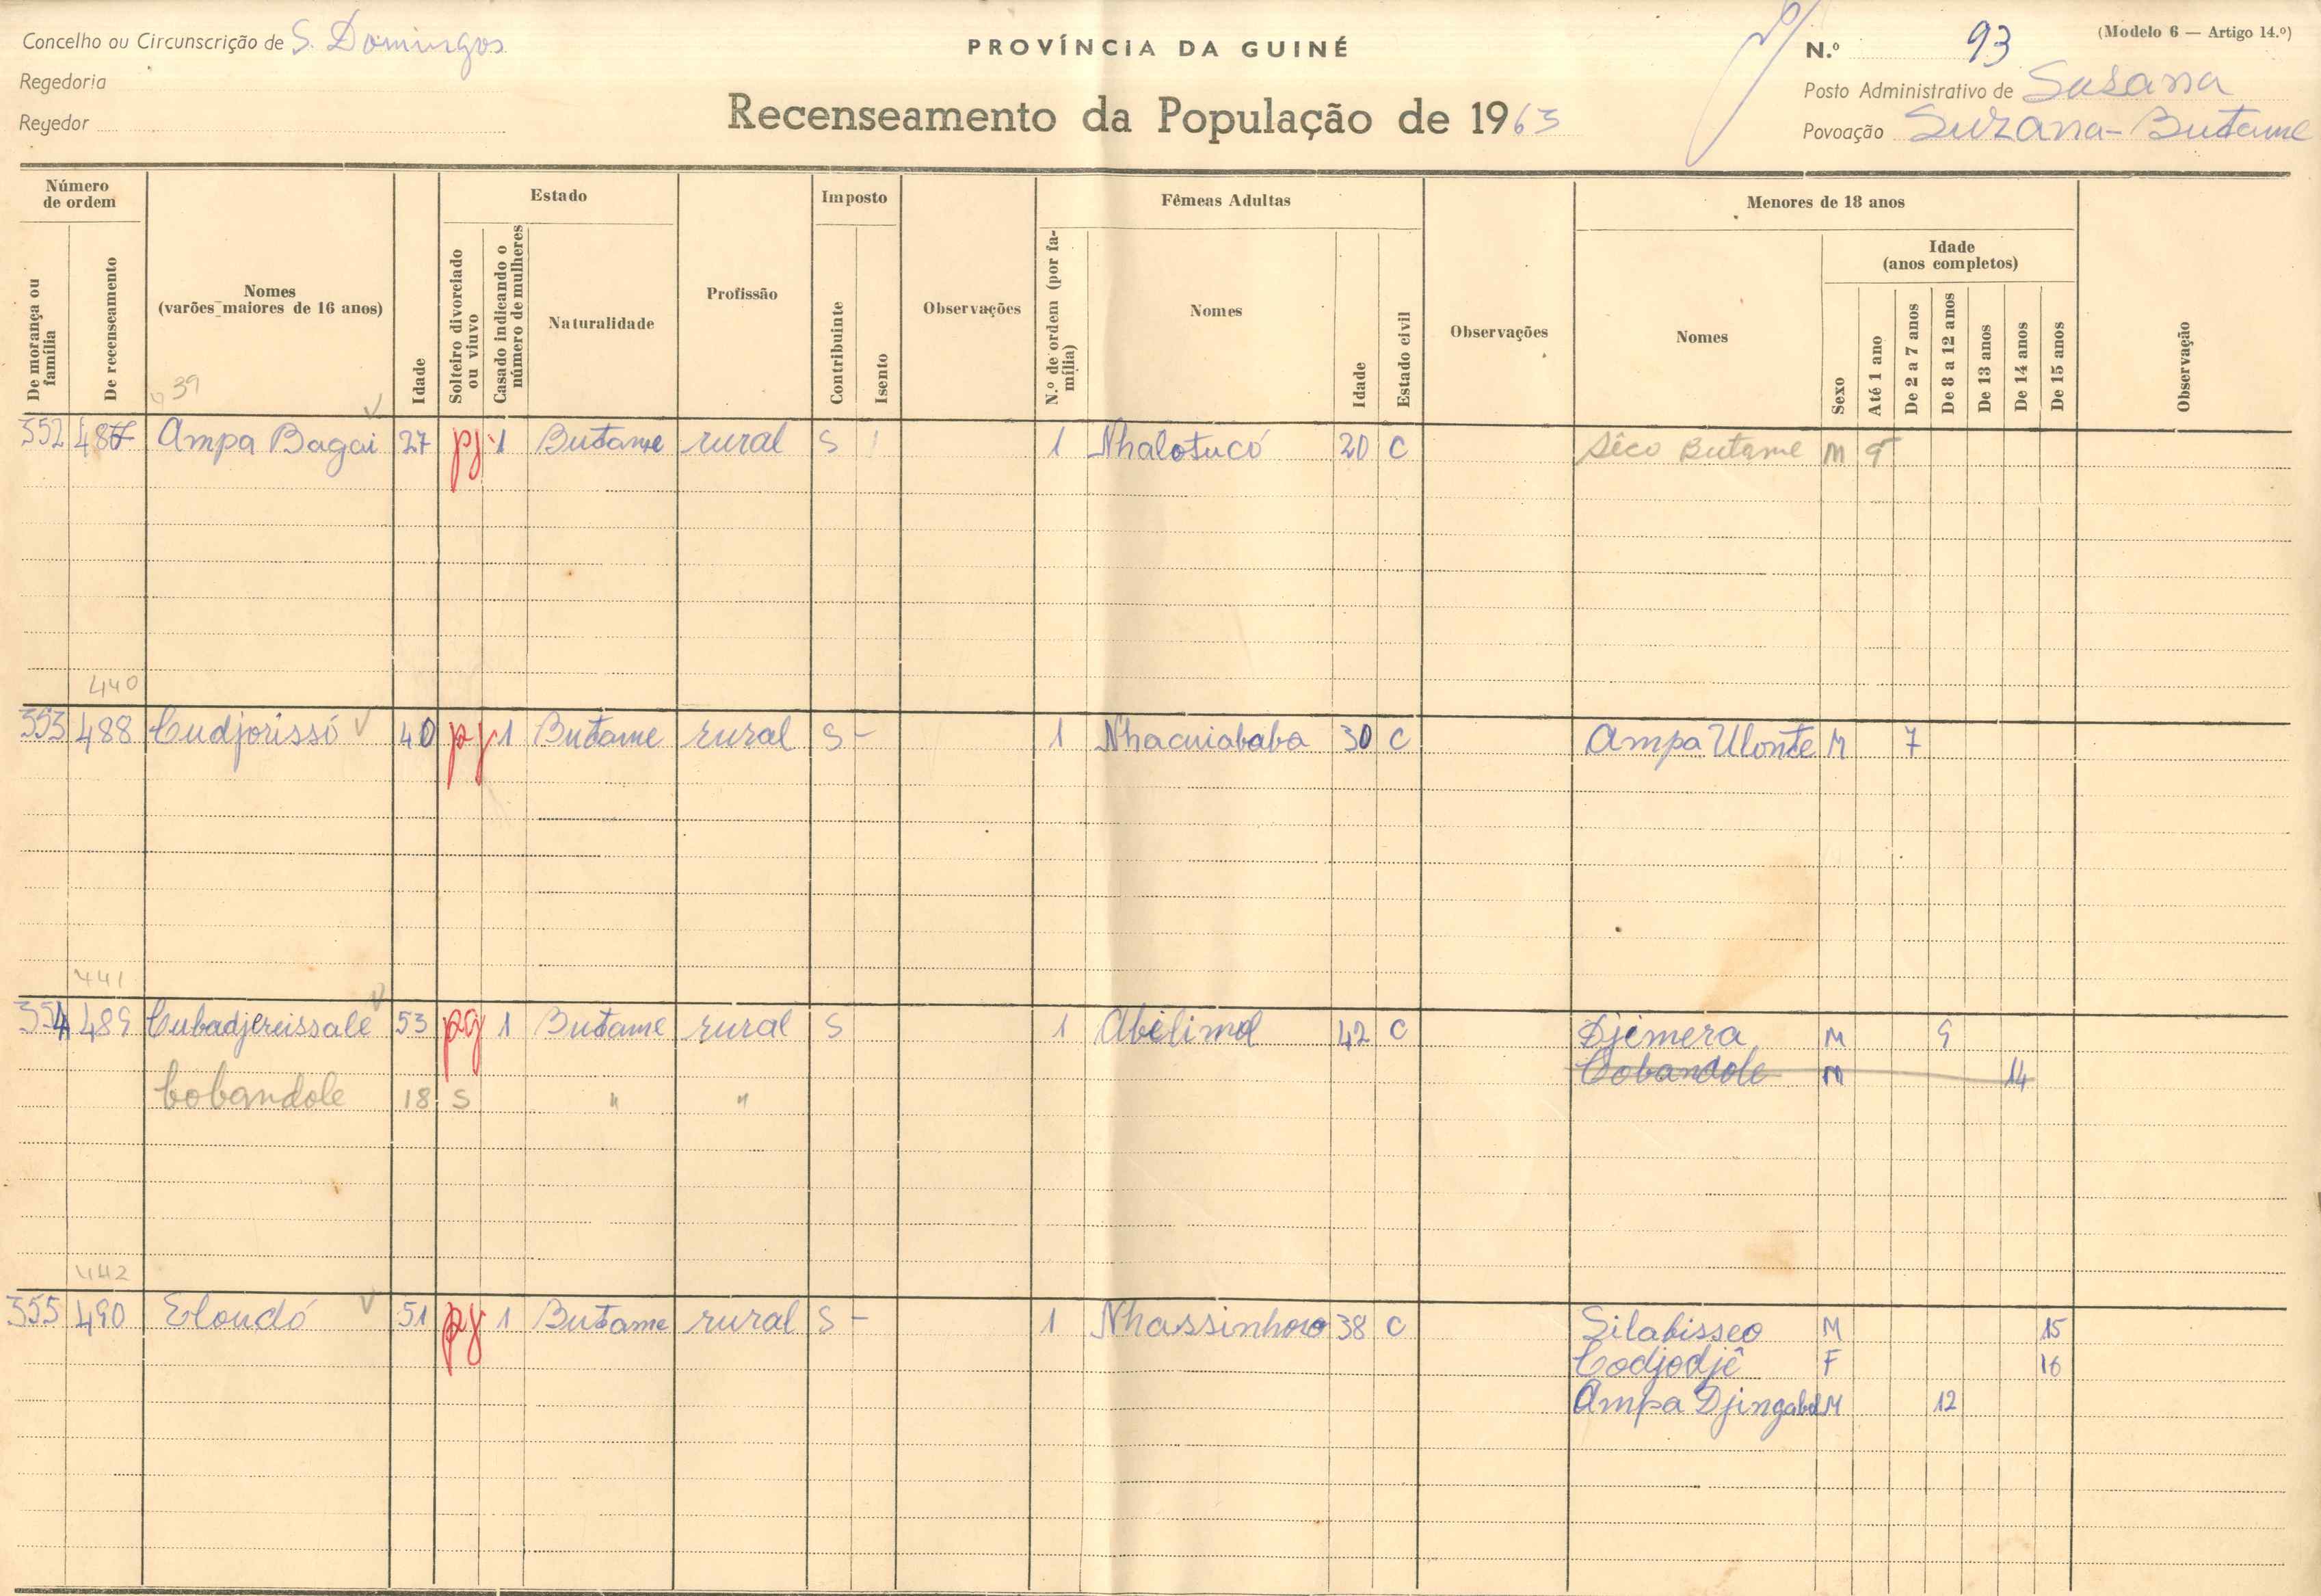 Concelho ou Circunscrição de S. Domingos
Regedoria
Regedor
PROVÍNCIA DA GUINÉ
Recenseamento da População de 1963
(Modelo 6 — Artigo 14.º)
N.º 93
Posto Administrativo de Susana
Povoação Suzana-Butame
Número de ordem
De morança ou família
De recenseamento
Nomes (varões maiores de 16 anos)
Idade
Estado
Solteiro divorciado ou viuvo
Casado indicando o número de mulheres
Naturalidade
Profissão
Imposto
Contribuinte
Isento
Observações
Fêmeas Adultas
N.º de ordem (por família)
Nomes
Idade
Estado civil
Observações
Menores de 18 anos
Nomes
Idade (anos completos)
Sexo
Até 1 ano
De 2 a 7 anos
De 8 a 12 anos
De 13 anos
De 14 anos
De 15 anos
Observação
39
352 487 Ampa Bagai 27 pg 1 Butame rural S 1 Nhalotucó 20 C Sêco Butame M
440
353 488 Cudjorissó 40 pg 1 Butame rural S - 1 Nhacuiababa 30 C Ampa Ulonte M 7
441
354 489 Cubadjereissale 53 pg 1 Butame rural S 1 Abelimol 42 C Djimera M 9
Cobandole M 14
Cobandole 18 S " "
442
355 490 Eloudó 51 pg 1 Butame rural S - 1 Nhassinhoro 38 C Silabisseo M 15
Codjodjê F 16
Ampa Djingabol M 12